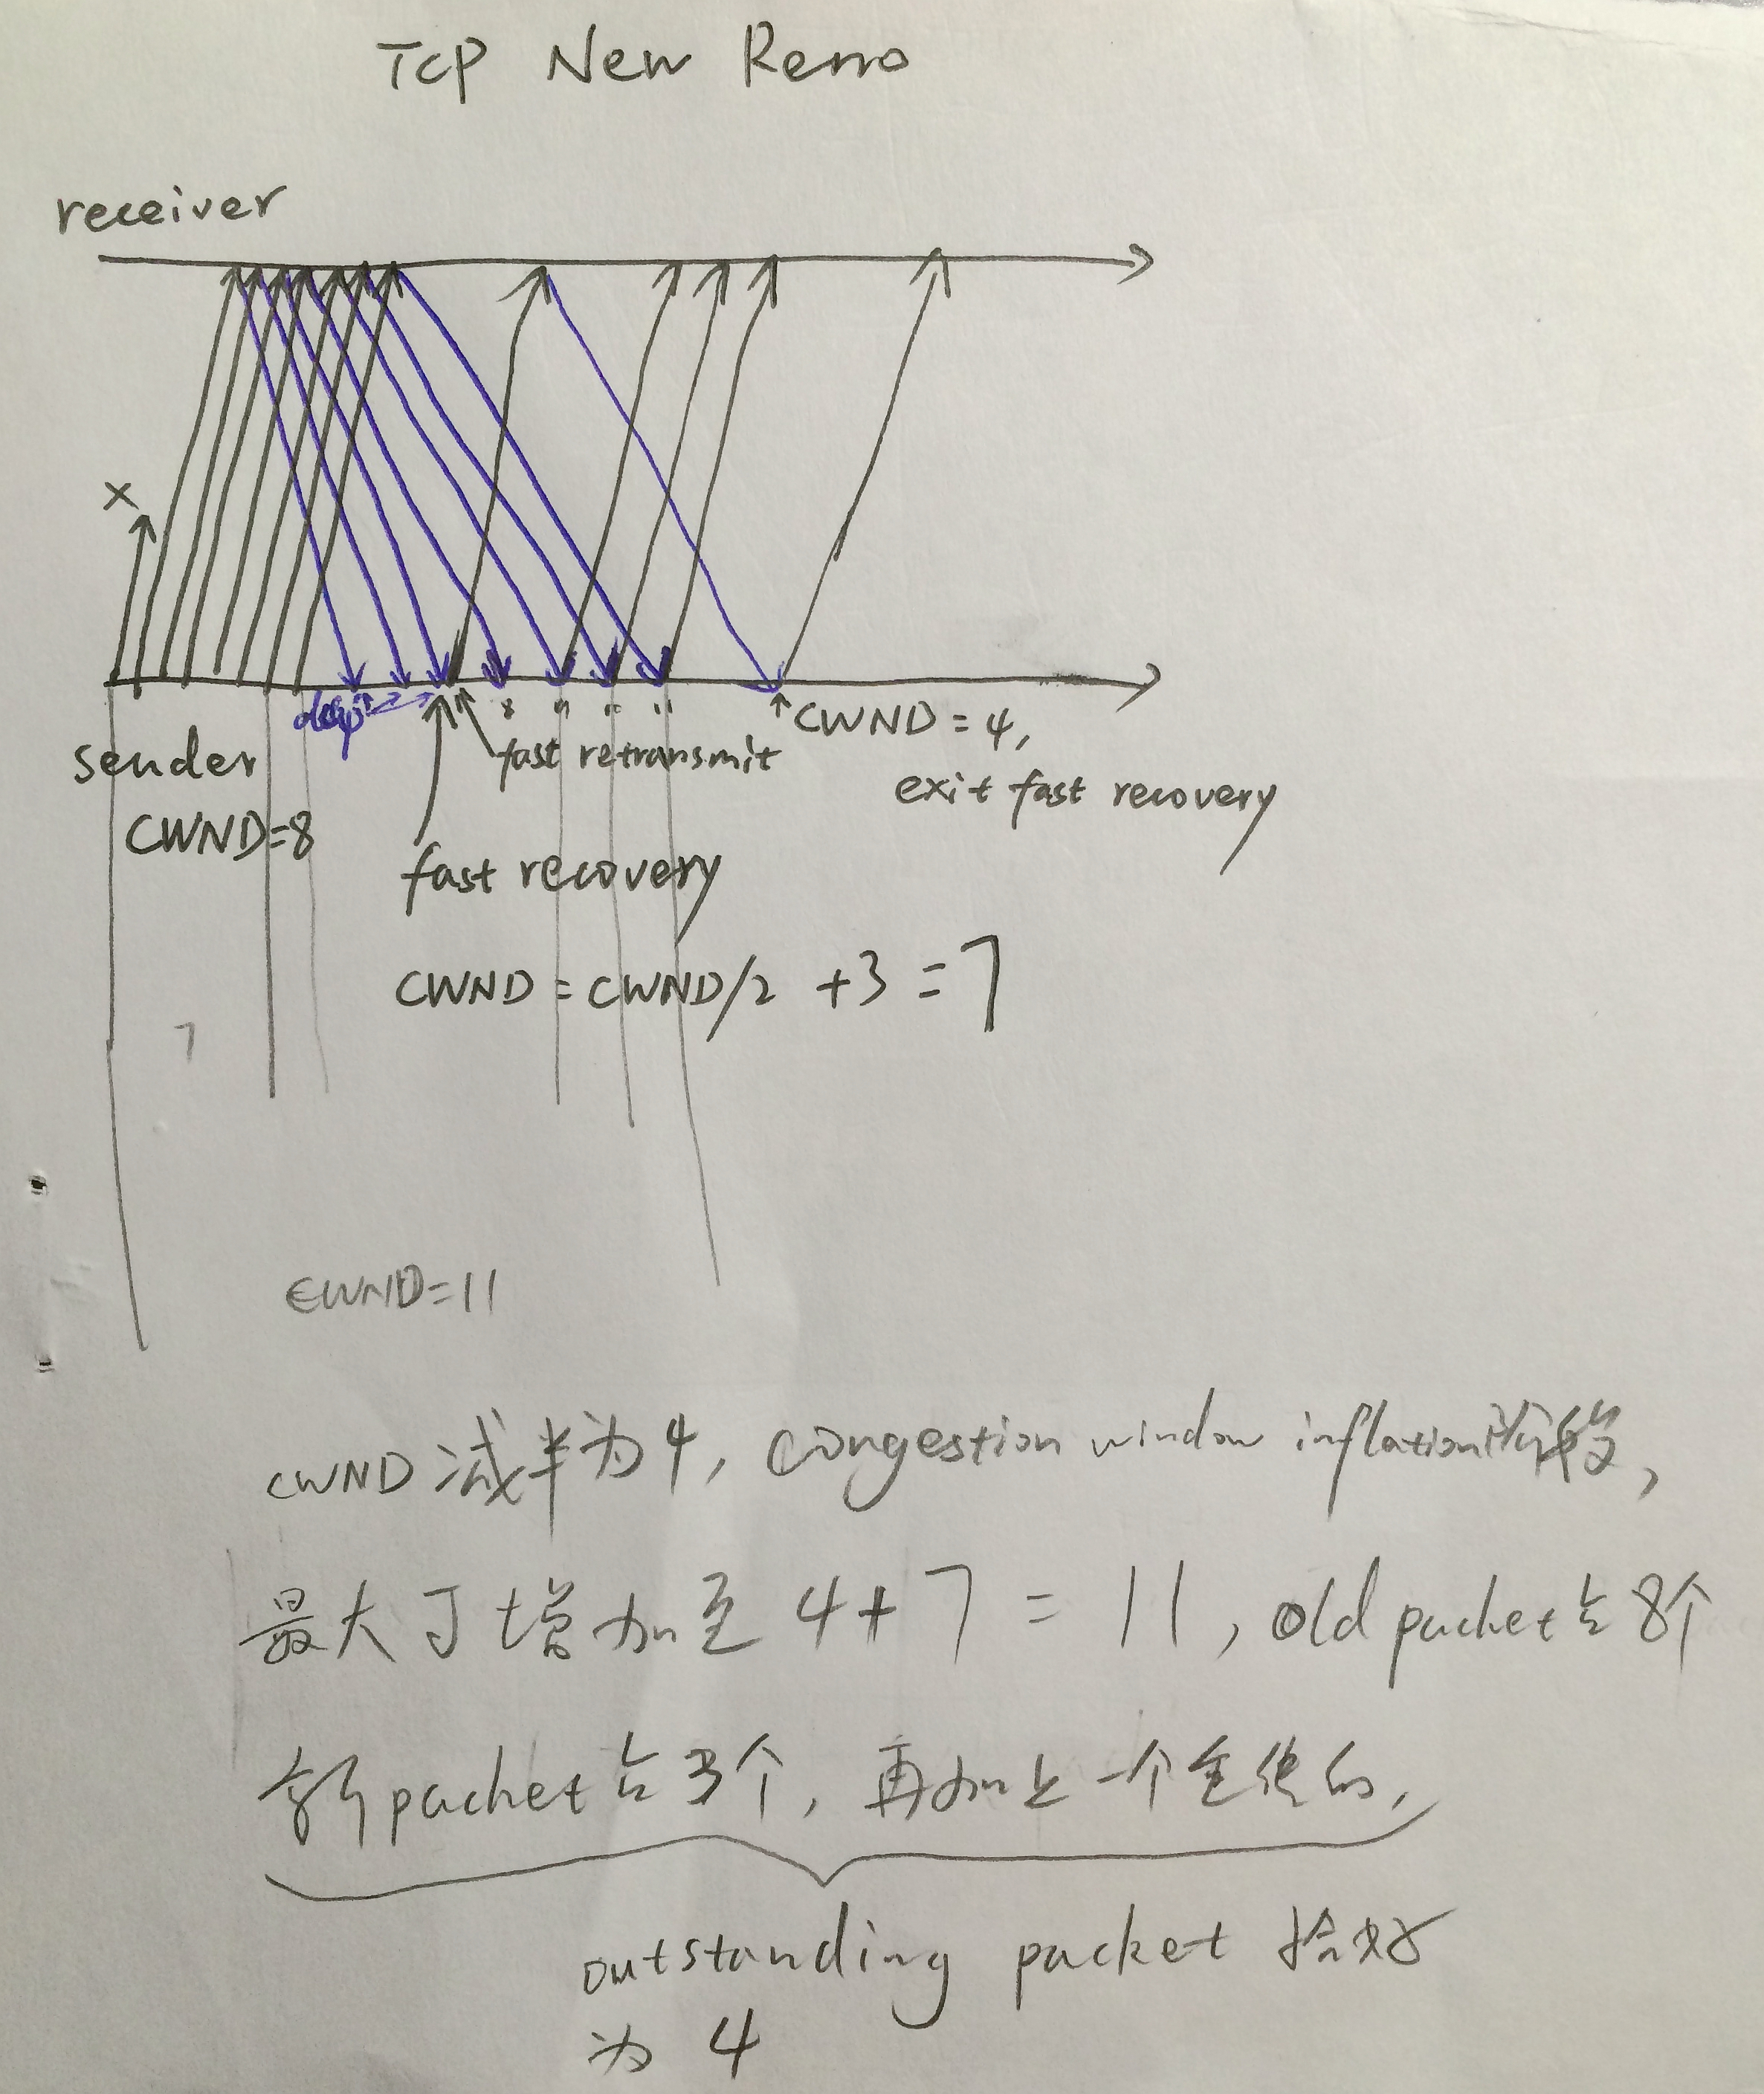 TCP New Reno
receiver
×
dup
8 9 10 11
sender
CWND=8
fast retransmit
CWND=4,
exit fast recovery
fast recovery
CWND = CWND/2 +3 =7
7
CWND=11
CWND 减半为4, congestion window inflation
最大可增加至 4+7=11, old packet占8个
新packet占3个, 再加上一个重传的,
outstanding packet 恰好
为 4